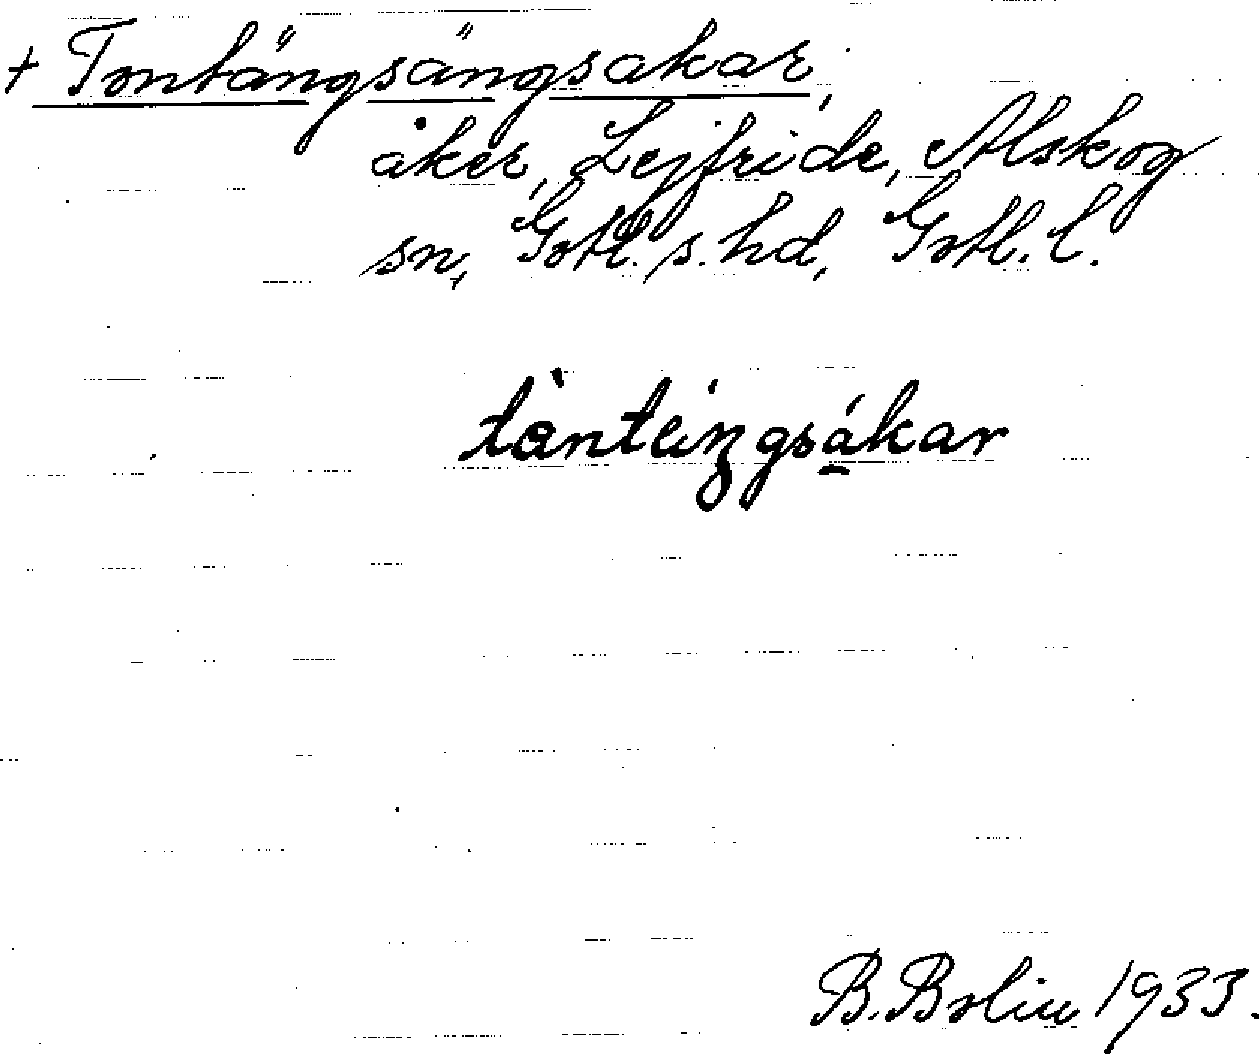 + Tontängsängsakar,
åker, Lejfride, Alskog
sn, Gotl. s. hd, Gotl. l.
tànteingsákar
B. Bolin 1933.